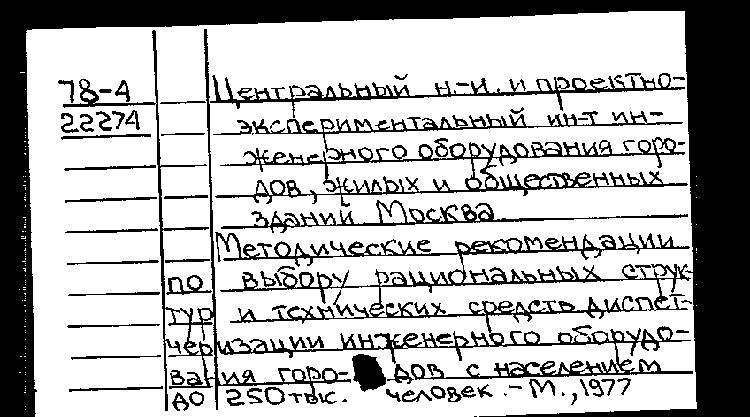 78-4 Центральный н.-и. и проектно-
22274 экспериментальный ин-т ин-
женерного оборудования горо-
дов, жилых и общественных
зданий Москва
Методические рекомендации
по выбору рациональных струк-
тур и технических средств диспет-
черизации инженерного оборудо-
вания горо- дов с населением
до 250 тыс. человек. - М., 1977